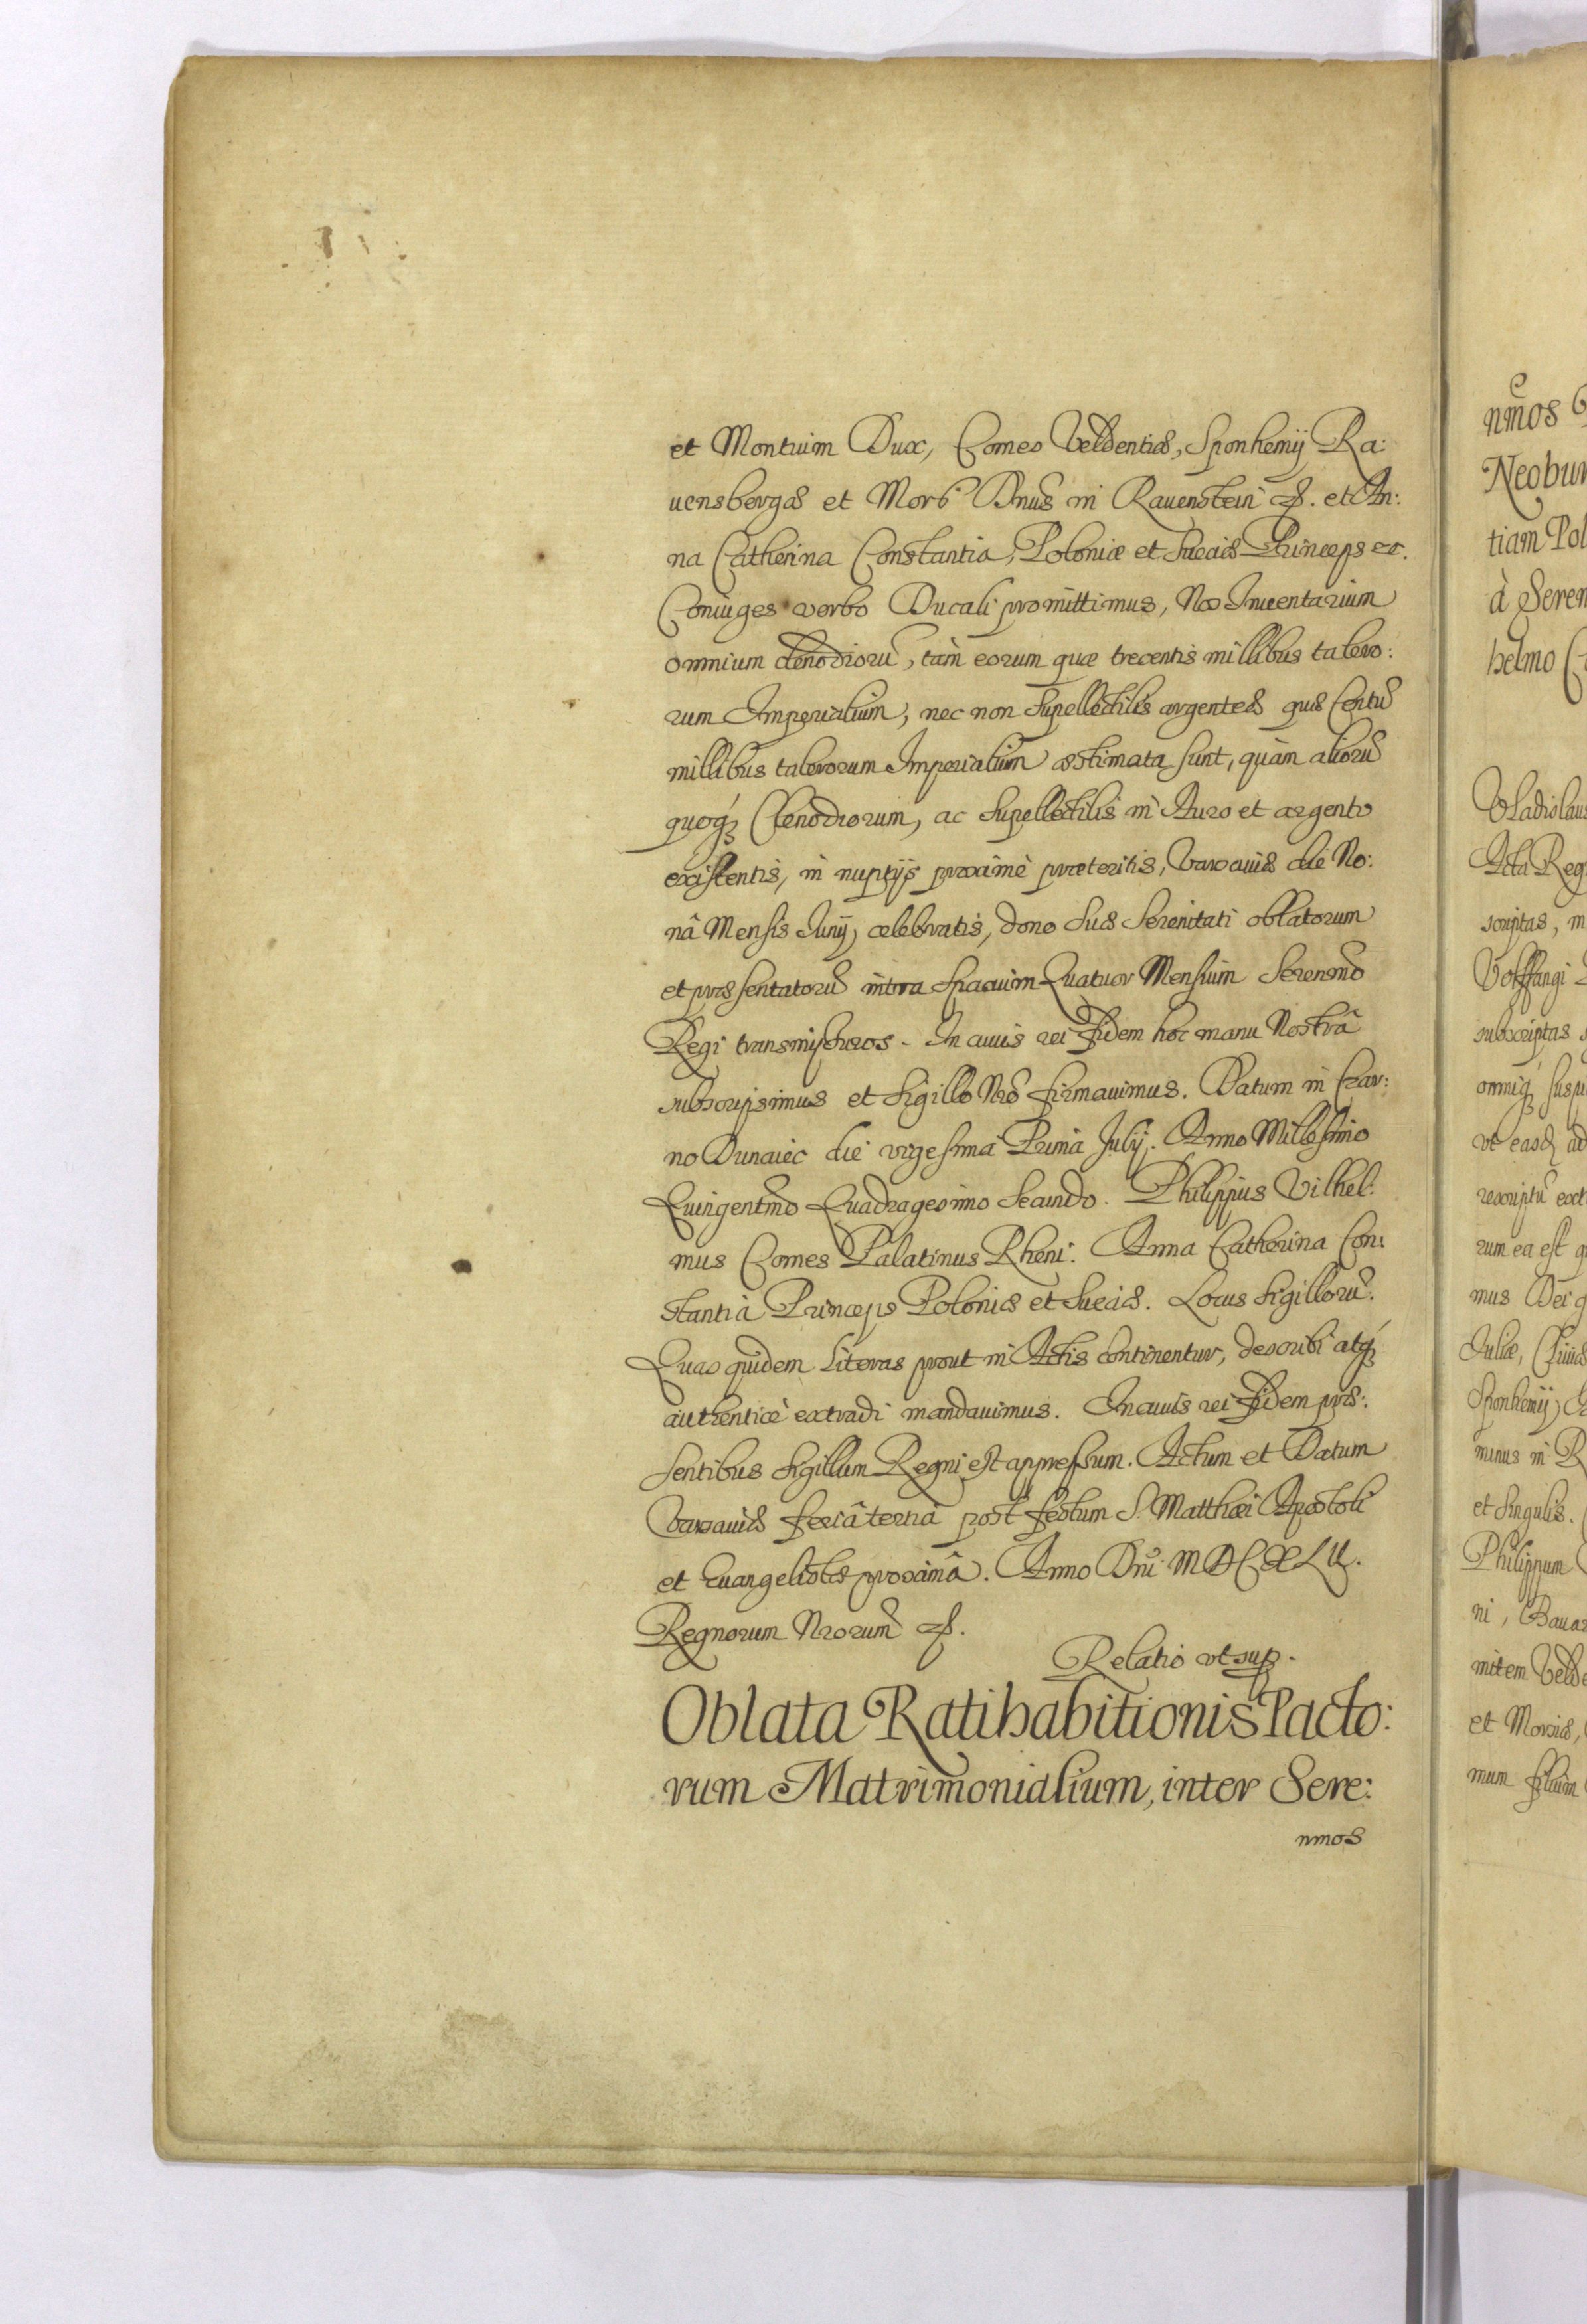 et Montium Dux, Comes Veldentiæ, Sponhemij Ra:
uensbergæ et Mors Dnus in Rauenstein &. et An:
na Catherina Constantia, Poloniæ et Sueciæ Princeps &c.
Coniuges verbo Ducali promittimus, Nos Inuentarium
omnium clenodiorũ, tàm eorum quæ trecentis millibus talero:
rum Imperialium, nec non Supellectilis argenteæ quæ Centũ
millibus talerorum Imperialium æstimata sunt, quàm aliorũ
quoq́ꝫ Clenodiorum, ac Supellectilis in Auro et argento
existentis, in nuptijs proximè præteritis, Varsauiæ die No:
nâ Mensis Junij, celebratis, dono Suæ Serenitati oblatorum
et præsentatorũ intra Spacium Quatuor Mensium Serenmo
Regi transmissuros. In cuius rei fidem hoc manu Nostrâ
subscripsimus et Sigillo Nro firmauimus. Datum in Czar:
no Dunaiec die vigesima Prima Julij. Anno Millesimo
Quingentmo Quadragesimo Secundo. Philippus Vilhel:
mus Comes Palatinus Rheni. Anna Catherina Con:
stantia Princeps Poloniæ et Sueciæ. Locus Sigillorũ.
Quas quidem Literas prout in Actis continentur, describi atq́ꝫ
authenticè extradi mandauimus. In cuius rei fidem præ:
sentibus Sigillum Regni est appressum. Actum et Datum
Varsauiæ feriâ tertiâ post festum S. Matthæi Apostoli
et Euangelistæ proximâ. Anno Dni MDCXLII.
Regnorum Nrorum &.
Relatio vt sup.
Oblata Ratihabitionis Pacto:
rum Matrimonialium, inter Sere:
nmos
nmos
Neobur
tiam Pol
à Seren
helmo
Vladislaus
Acta Reg
scriptas, m
Volffangi
subscriptas
omniq́ꝫ susp
vt easdꝫ ad
rescriptũ ext
rum ea est q
mus Dei g
Juliæ, Cliuiæ
Sponhemij,
minus in R
et Singulis.
Philippum
ni, Bauar
mitem Velde
et Morsiæ,
mum filium